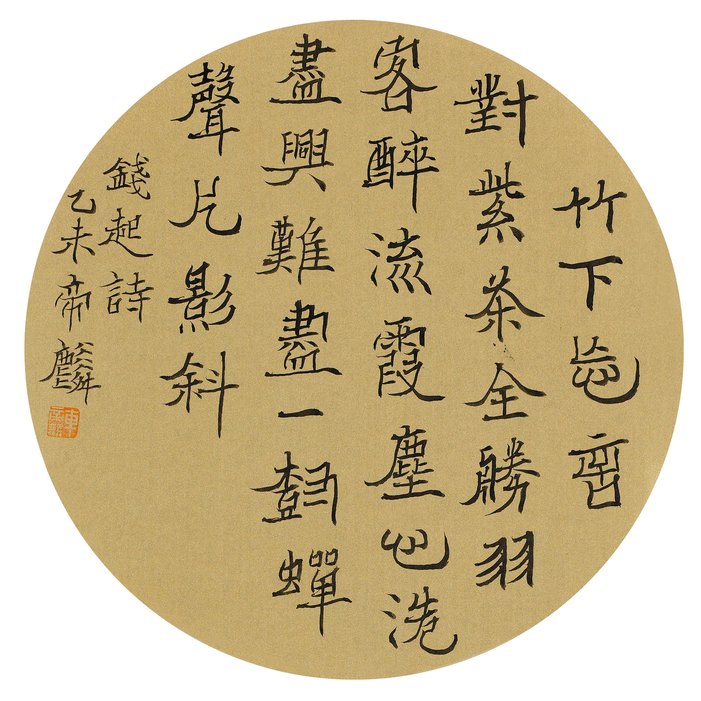 竹下忘言
對紫茶全勝羽
客醉流霞塵心洗
盡興難盡一樹蟬
聲片影斜
錢起詩
乙未帝麟